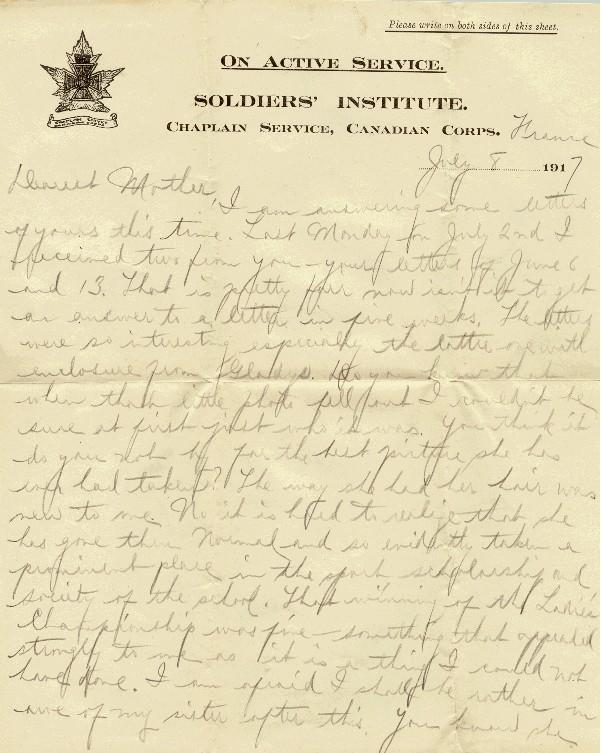 Please write on both sides of this sheet.
ON ACTIVE SERVICE.
SOLDIERS' INSTITUTE.
CHAPLAIN SERVICE, CANADIAN CORPS. France
July 8 1917
Dearest Mother,
I am answering some letters
of yours this time. Last Monday on July 2nd I
received two from you - your letters of June 6
and 13. That is pretty fair now isn't it to get
an answer to a letter in five weeks. The letters
were so interesting especially the latter one with
enclosure from Gladys. Do you know that
when that little photo fell out I couldn't be
sure at first just who it was. You think it
do you not by far the best picture she has
ever had taken? The way she had her hair was
new to me. No it is hard to realize that she
has gone thru Normal and so evidently taken a
prominent place in the sport scholarship and
society of the school. That winning of the Ladies
Championship was fine - something that appealed
strongly to me as it is a thing I could not
have done. I am afraid I shall be rather in
awe of my sister after this. You know she